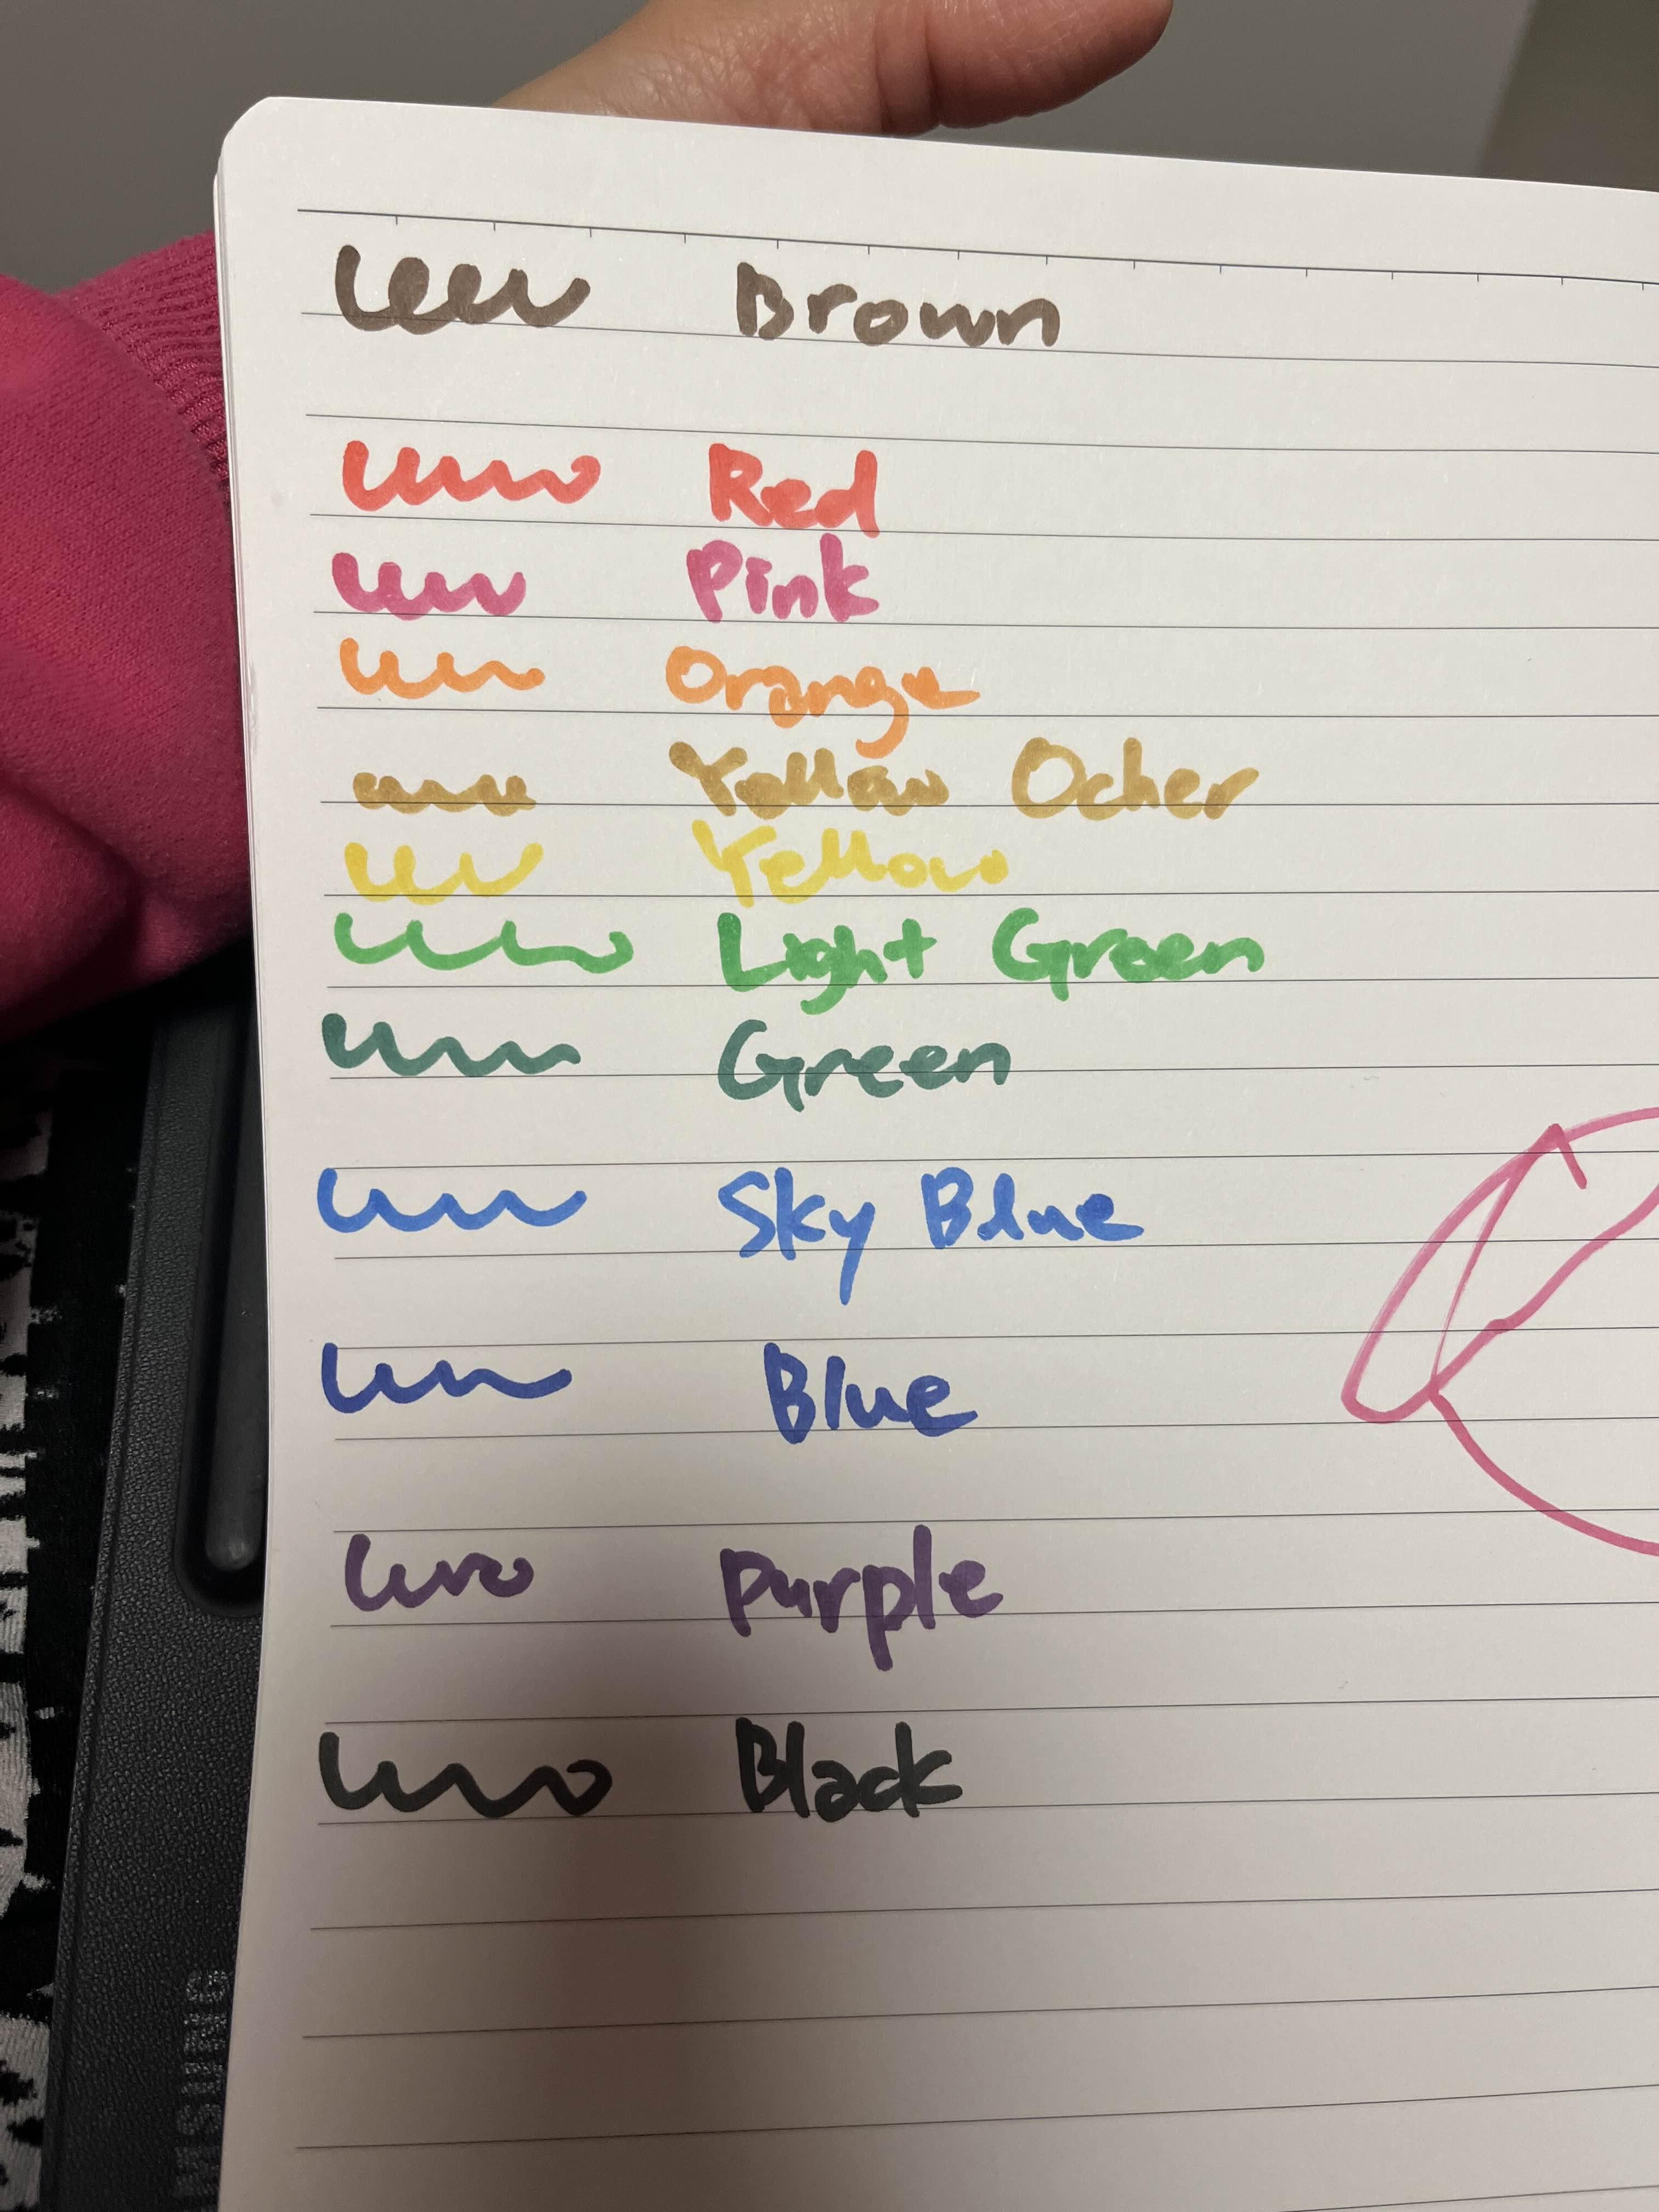 Brown
Red
Pink
Orange
Yellow Ocher
Yellow
Light Green
Green
Sky Blue
Blue
Purple
Black
SAMSUNG